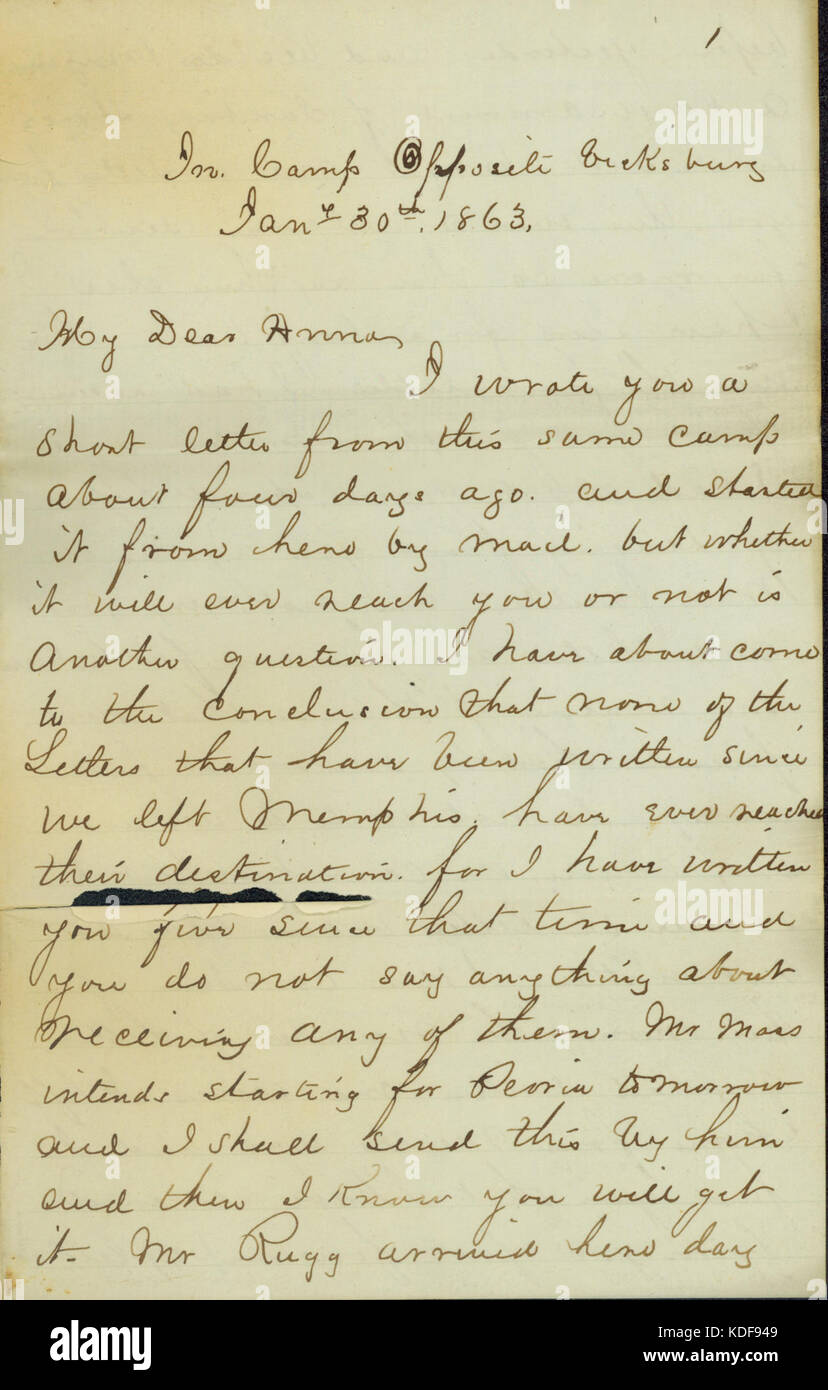 1
In. Camp Opposite Vicksburg
Jany 30th. 1863.
My Dear Anna
I wrote you a
short letter from this same camp
about four days ago. and started
it from here by mail. but whether
it will ever reach you or not is
another question. I have about come
to the conclusion that none of the
Letters that have been written since
we left Memphis. have ever reached
their destination. for I have written
you five since that time and
you do not say anything about
receiving any of them. Mr Maas
intends starting for Peoria tomorrow
and I shall send this by him
and then I know you will get
it. Mr Rugg arrived here day
alamy
alamy stock photo
KDF949
www.alamy.com